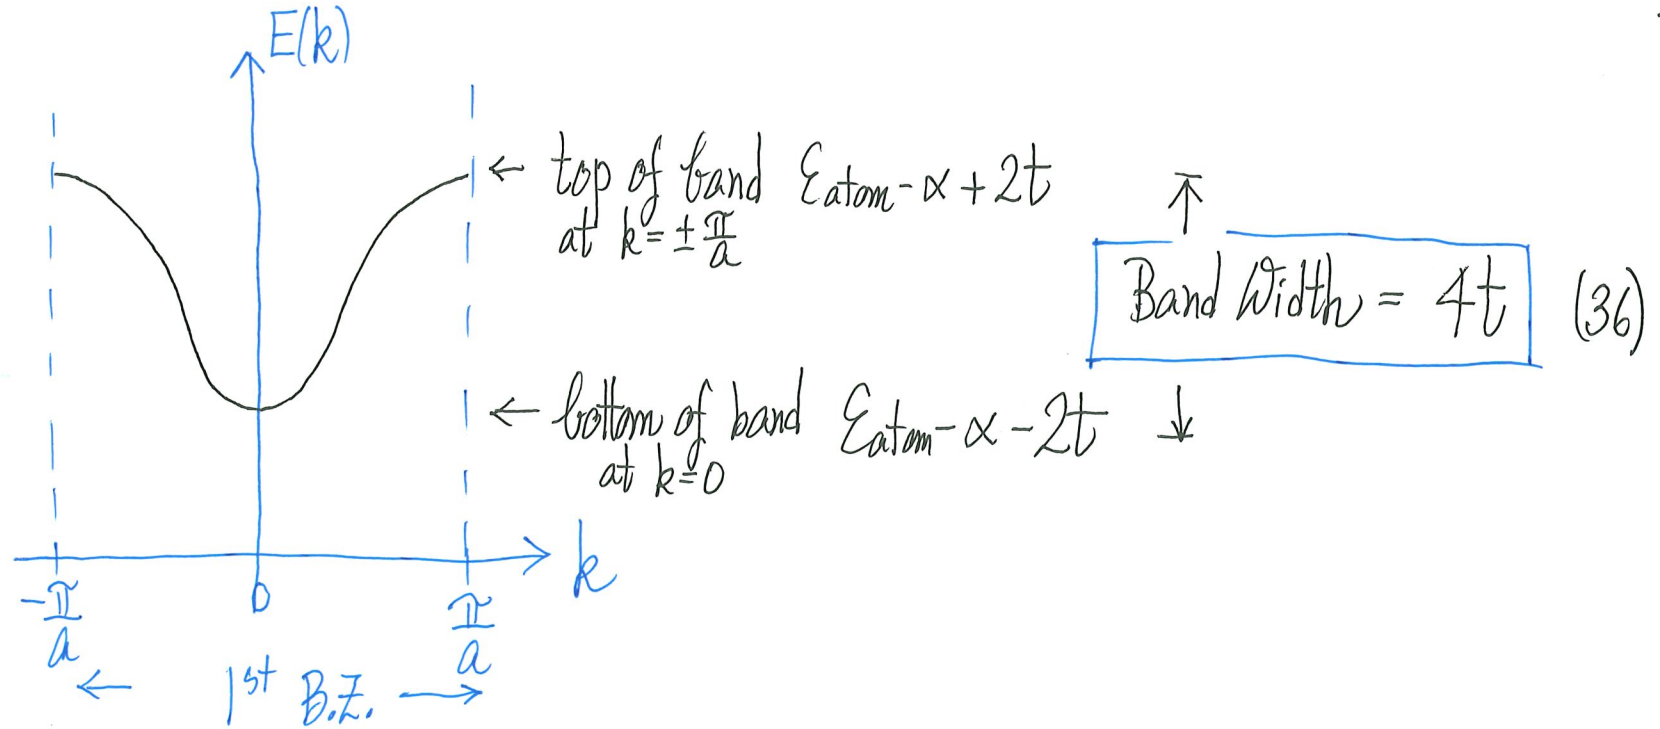 E(k)
← top of band Eatom - α + 2t
at k = ± π/a
Band Width = 4t (36)
← bottom of band Eatom - α - 2t
at k = 0
k
-π/a 0 π/a
← 1st B.Z. →